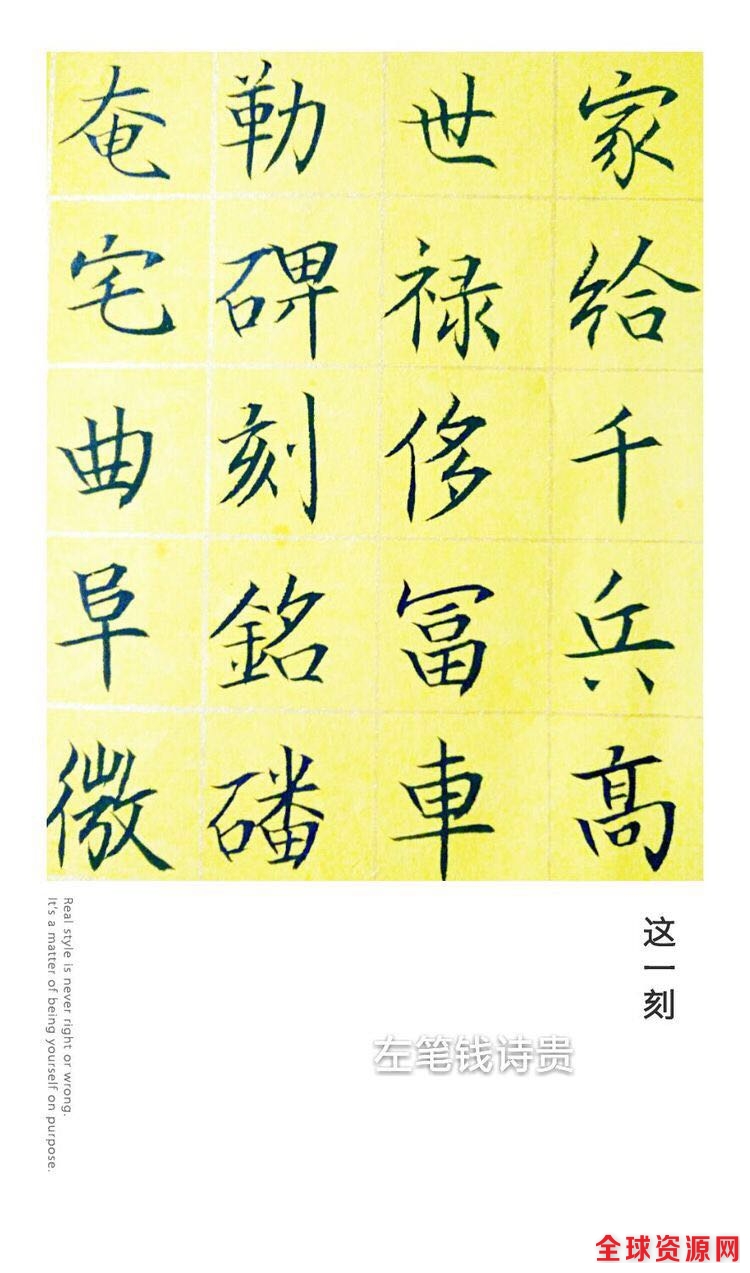 家给千兵髙
世禄侈冨車
勒碑刻銘磻
奄宅曲阜微
这一刻
左笔钱诗贵
Real style is never right or wrong.
It's a matter of being yourself on purpose.
全球资源网